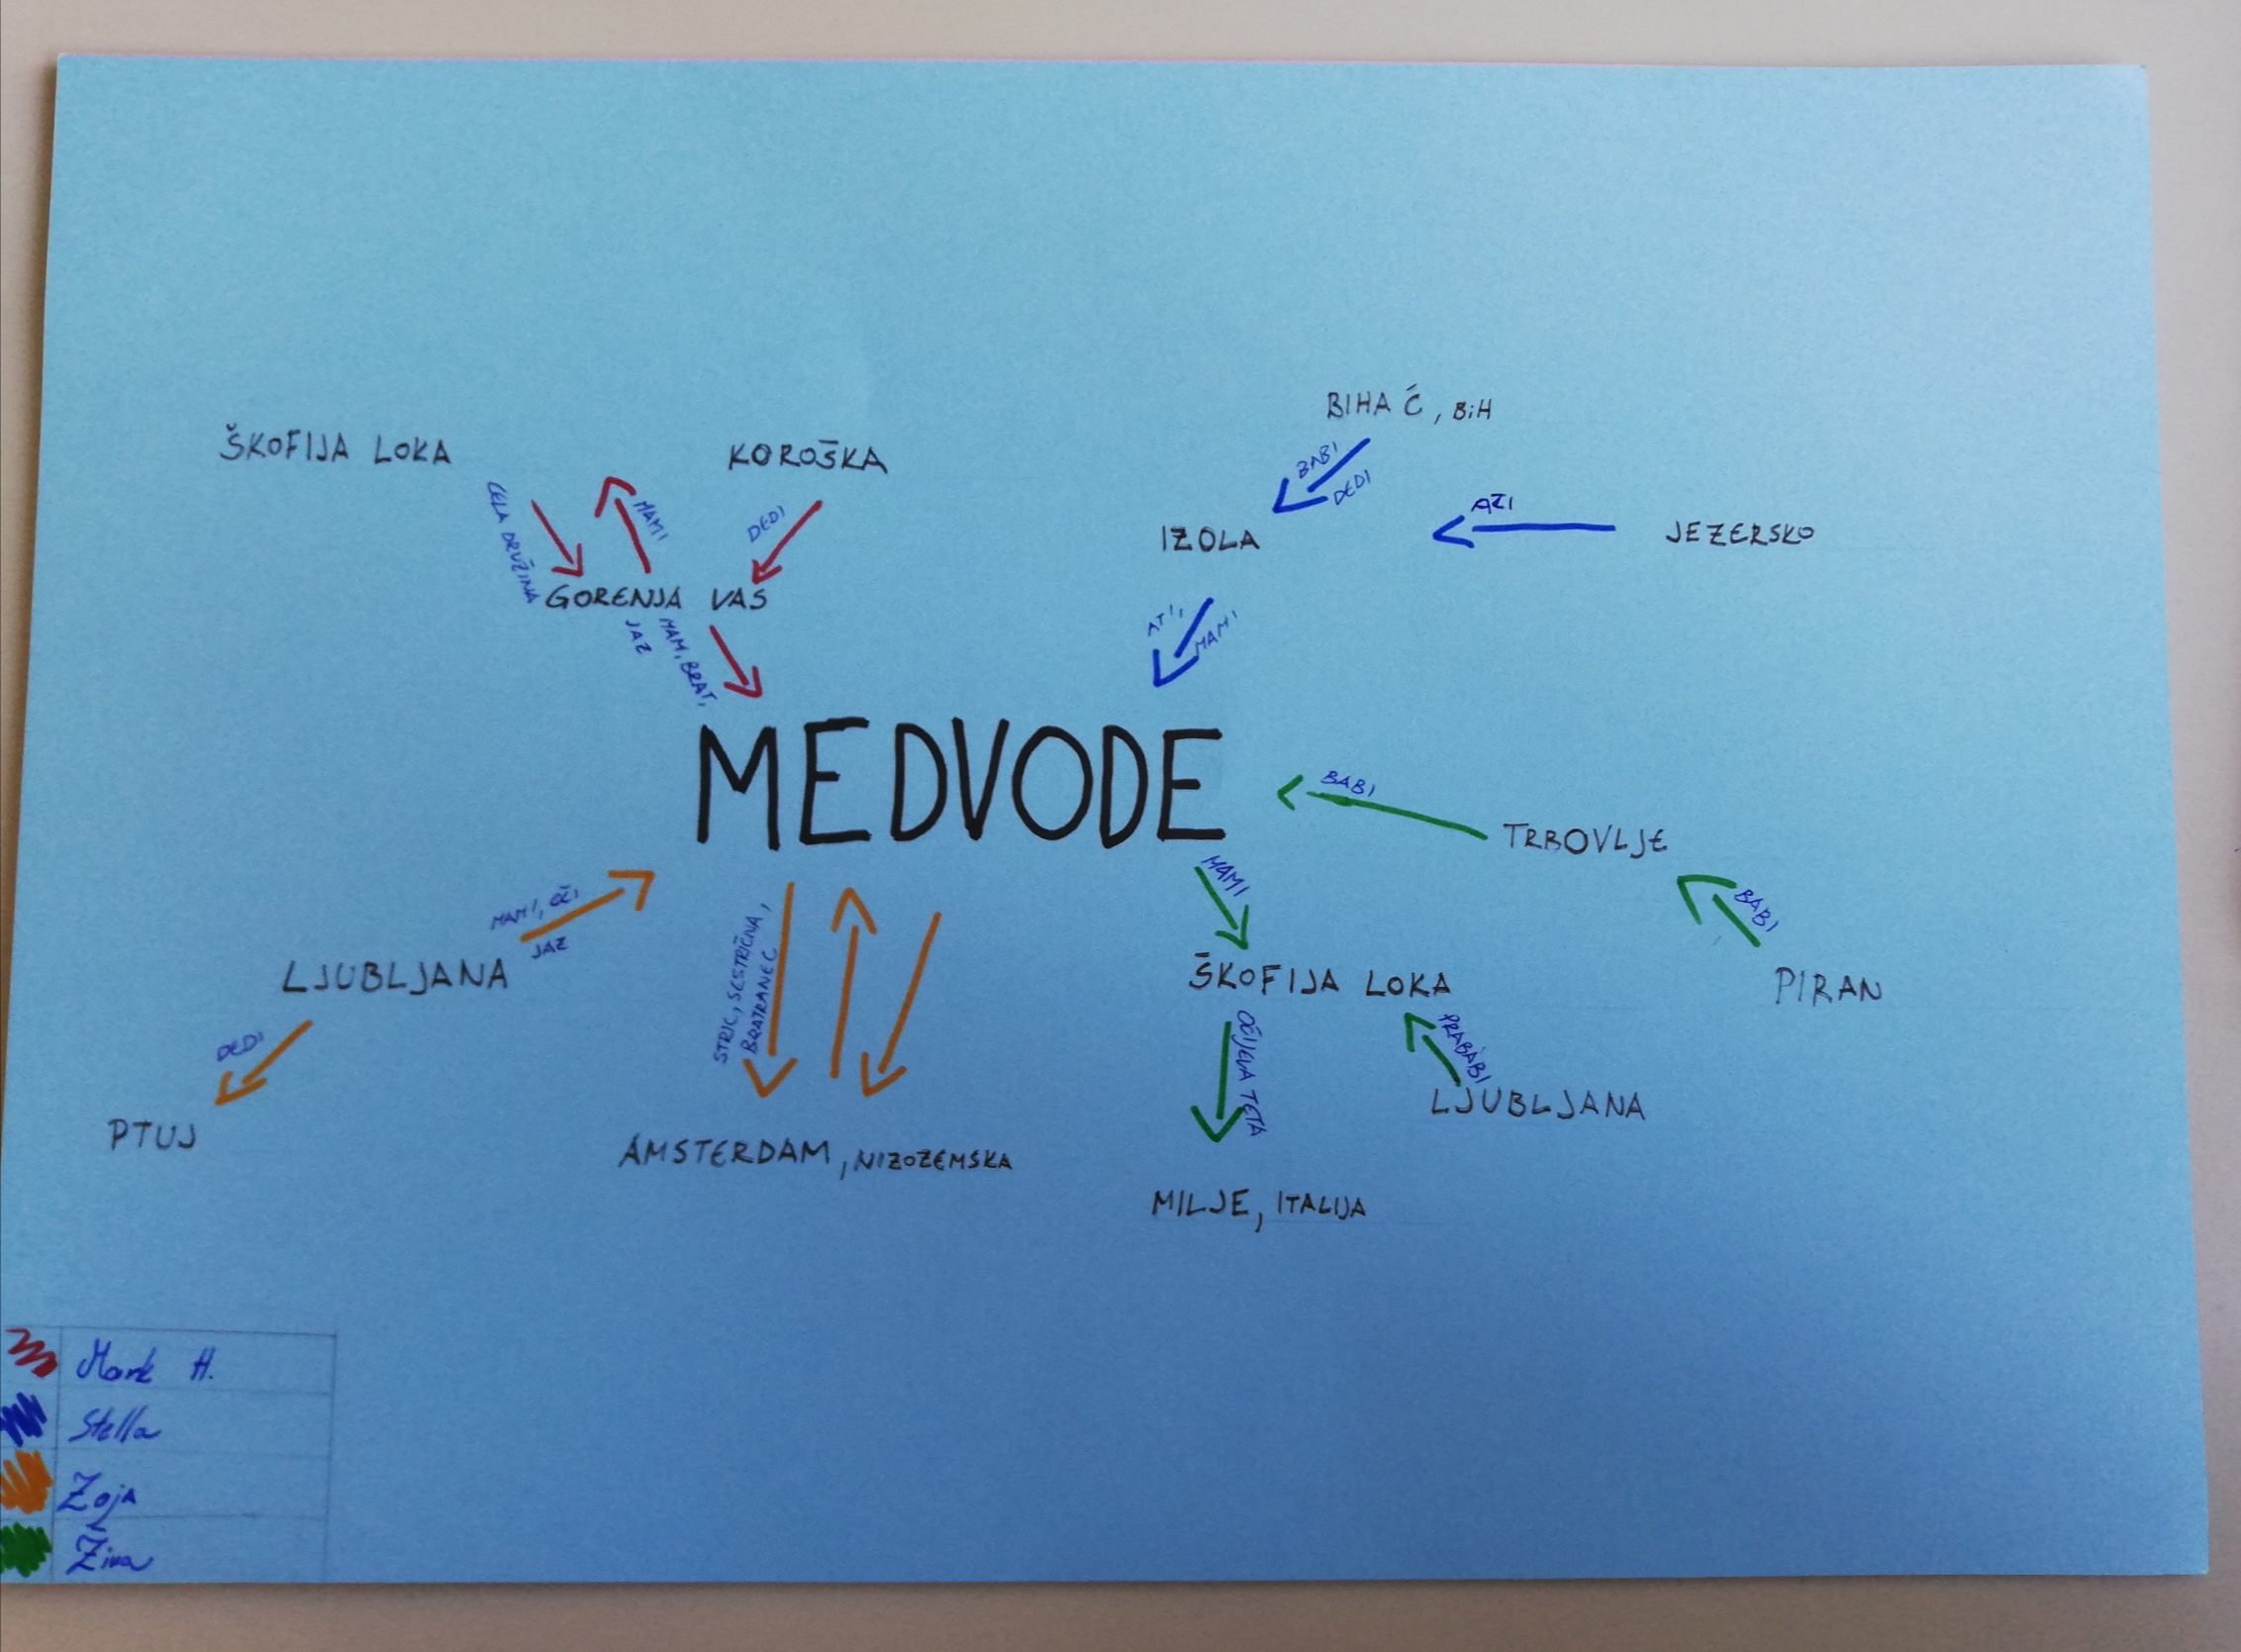 BIHAĆ, BiH
ŠKOFIJA LOKA
KOROŠKA
BABI
DEDI
CELA DRUŽINA
MAMI
DEDI
AŽI
IZOLA
JEZERSKO
GORENJA VAS
JAZ
MAMI, BRAT,
ATI,
MAMI
MEDVODE
BABI
TRBOVLJE
MAMI
BABI
MAMI, OČI
JAZ
STRIC, SESTRIČNA,
BRATRANEC
LJUBLJANA
ŠKOFIJA LOKA
PIRAN
DEDI
OČIJEVA TETA
PRABABI
LJUBLJANA
PTUJ
AMSTERDAM, NIZOZEMSKA
MILJE, ITALIJA
Mark H.
Stella
Zoja
Živa